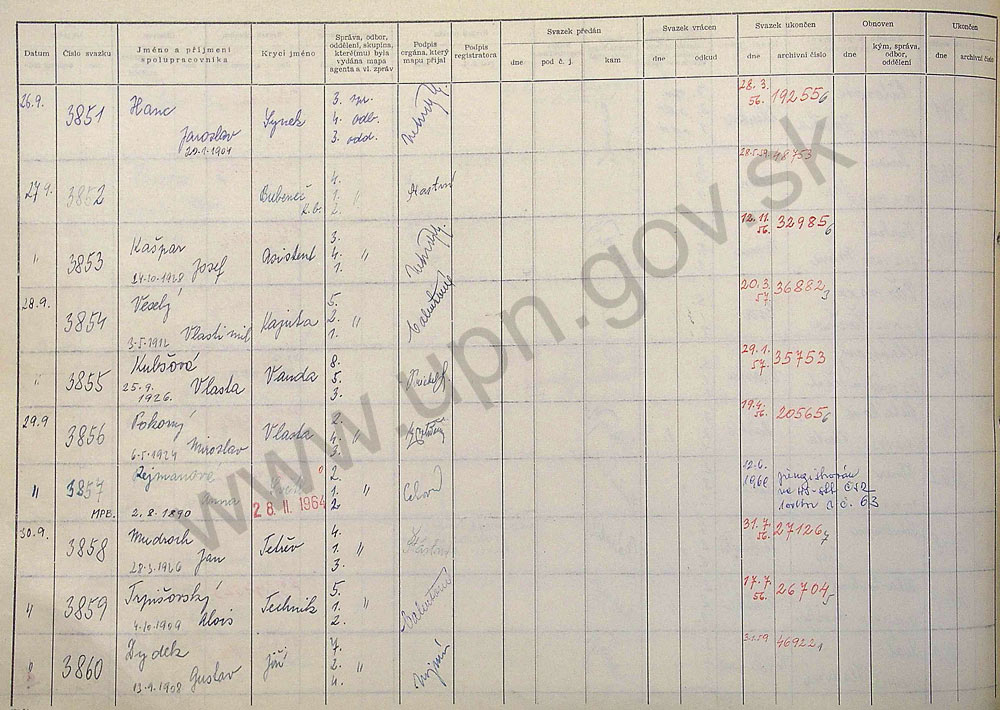 Datum
Číslo svazku
Jméno a příjmení spolupracovníka
Krycí jméno
Správa, odbor, oddělení, skupina, které(mu) byla vydána mapa agenta a vl. zpráv
Podpis orgána, který mapu přijal
Podpis registratora
Svazek předán
dne
pod č. j.
kam
Svazek vrácen
dne
odkud
Svazek ukončen
dne
archivní číslo
Obnoven
dne
kým, správa, odbor, oddělení
Ukončen
dne
archivní číslo
26.9. 3851 Hanc Jaroslav Synek 3. spr. 28. 3. 56. 192556
29.1.1904 4. odb.
3. odd.
27.9. 3852 Bubeneč 4. 1. 2. 28.5.59 48753
" 3853 Kašpar Josef Asistent 3. 4. " 1. 12. 11. 56. 32985
24.10.1928
28.9. 3854 Veselý Vlastimil Kajuta 5. 2. " 1. 20. 3. 57. 36882
3.5.1912
" 3855 Kubšová Vlasta Vanda 8. 5. 3. 29. 1. 57. 35753
25.9.1926.
29.9 3856 Pokorný Miroslav Vlasta 2. 4. " 3. 19.4. 56. 20565
6.5.1924
" 3857 Rejmanová Anna 2. 1. " 2. 12.6. 1960
MPB. 2.8.1890 28. II. 1964 č. 63
30.9. 3858 Mudroch Jan Tetřev 4. 1. " 3. 31. 7. 56. 27126
28.3.1926
" 3859 Alois Technik 5. 1. " 2. 17. 7. 56. 26704
4.10.1909
" 3860 Dydek Gustav Jiří 7. 2. " 4. 3.1.59 46922
13.9.1908
www.upn.gov.sk